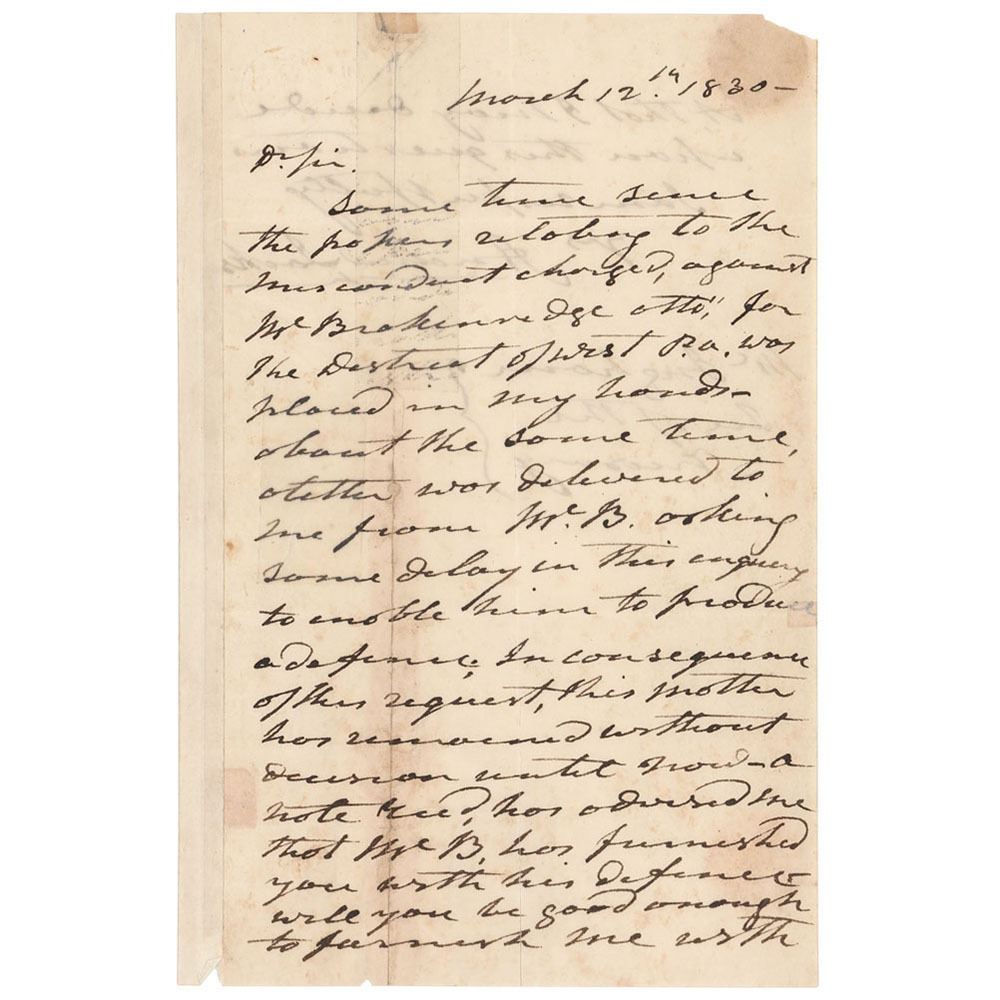 March 12th 1830—
Dr Sir.
Some time sence
the papers relating to the
misconduct charged, against
Mr Brakenredge atto, for
the District of west P.a. was
placed in my hands—
about the same time,
a letter was delivered to
me from Mr. B. asking
some delay in this enquery
to enoble him to produce
a defence. In consequence
of this request, this matter
has remained without
decision until now—a
note recd, has advised me
that Mr B. has furnished
you with his defence
will you be good enough
to furnish me with
of that I may decide
upon this